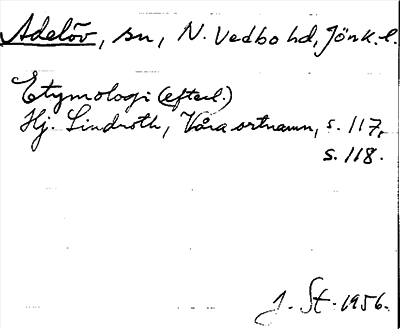 Adelöv, sn, N. Vedbo hd, Jönk. l.
Etymologi (efterl.)
Hj. Lindroth, Våra ortnamn, s. 117,
s. 118.
J. St. 1956.